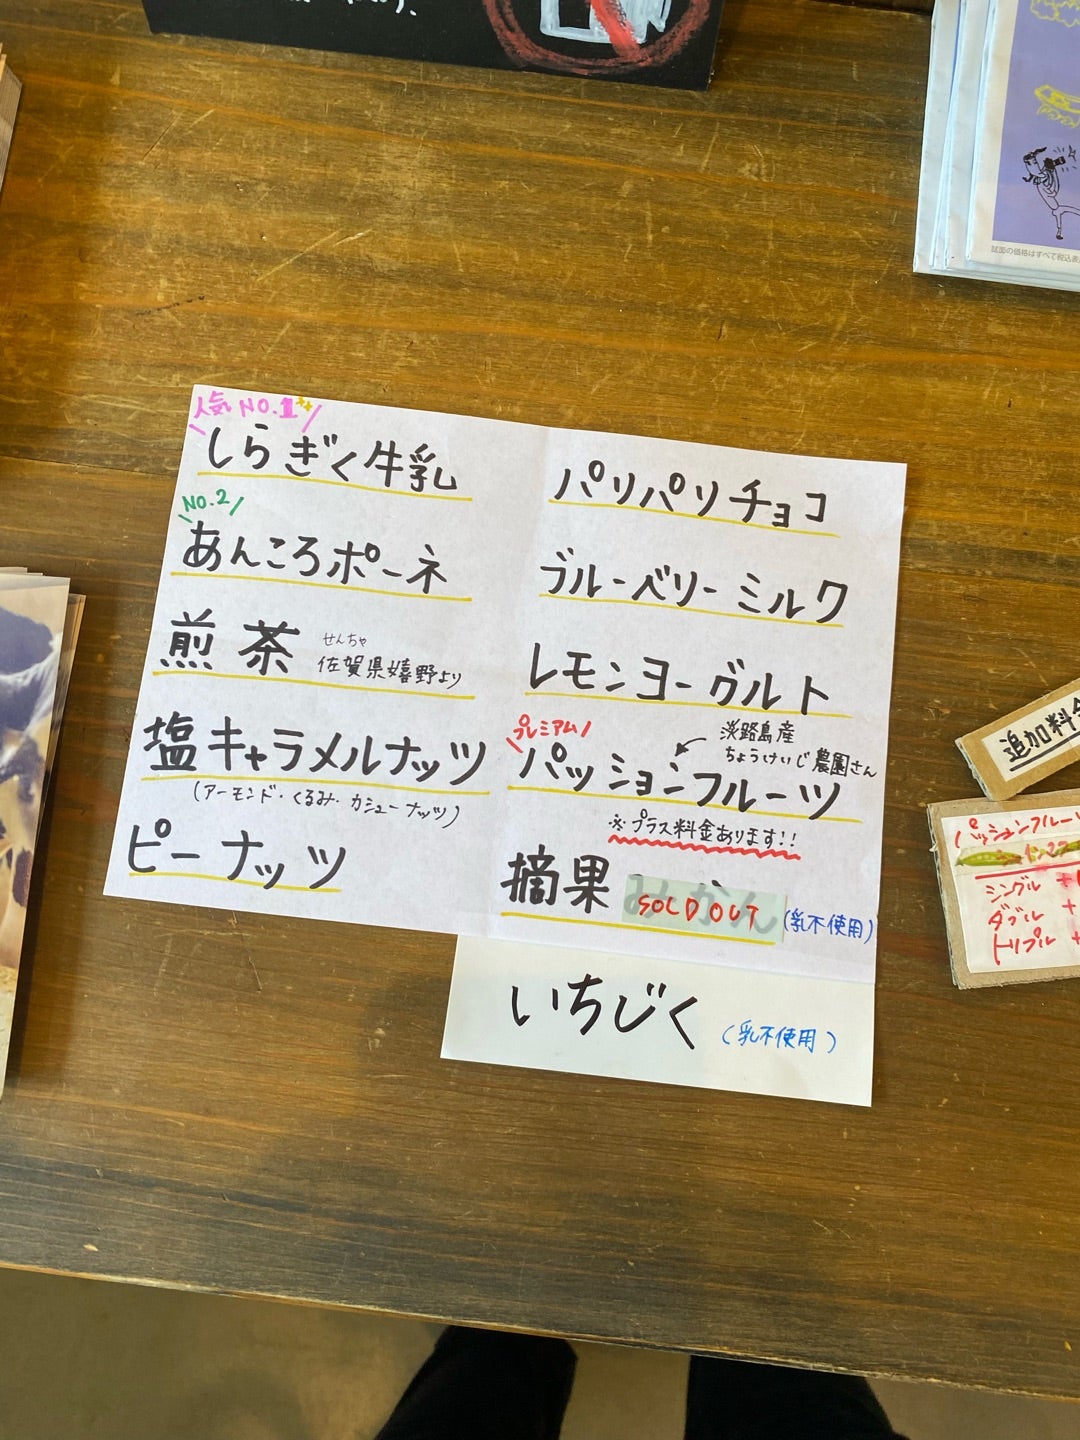 人気 NO.1
しらぎく牛乳
NO.2
あんころポーネ
煎茶
せんちゃ
佐賀県嬉野より
塩キャラメルナッツ
(アーモンド・くるみ・カシューナッツ)
ピーナッツ
パリパリチョコ
ブルーベリーミルク
レモンヨーグルト
プレミアム!
淡路島産
ちょうけいじ農園さん
パッションフルーツ
※プラス料金あります!!
摘果みかん
SOLD OUT
(乳不使用)
いちじく
(乳不使用)
追加料金
パッションフルーツ
シングル +
ダブル +
トリプル +
誌面の価格はすべて税込表